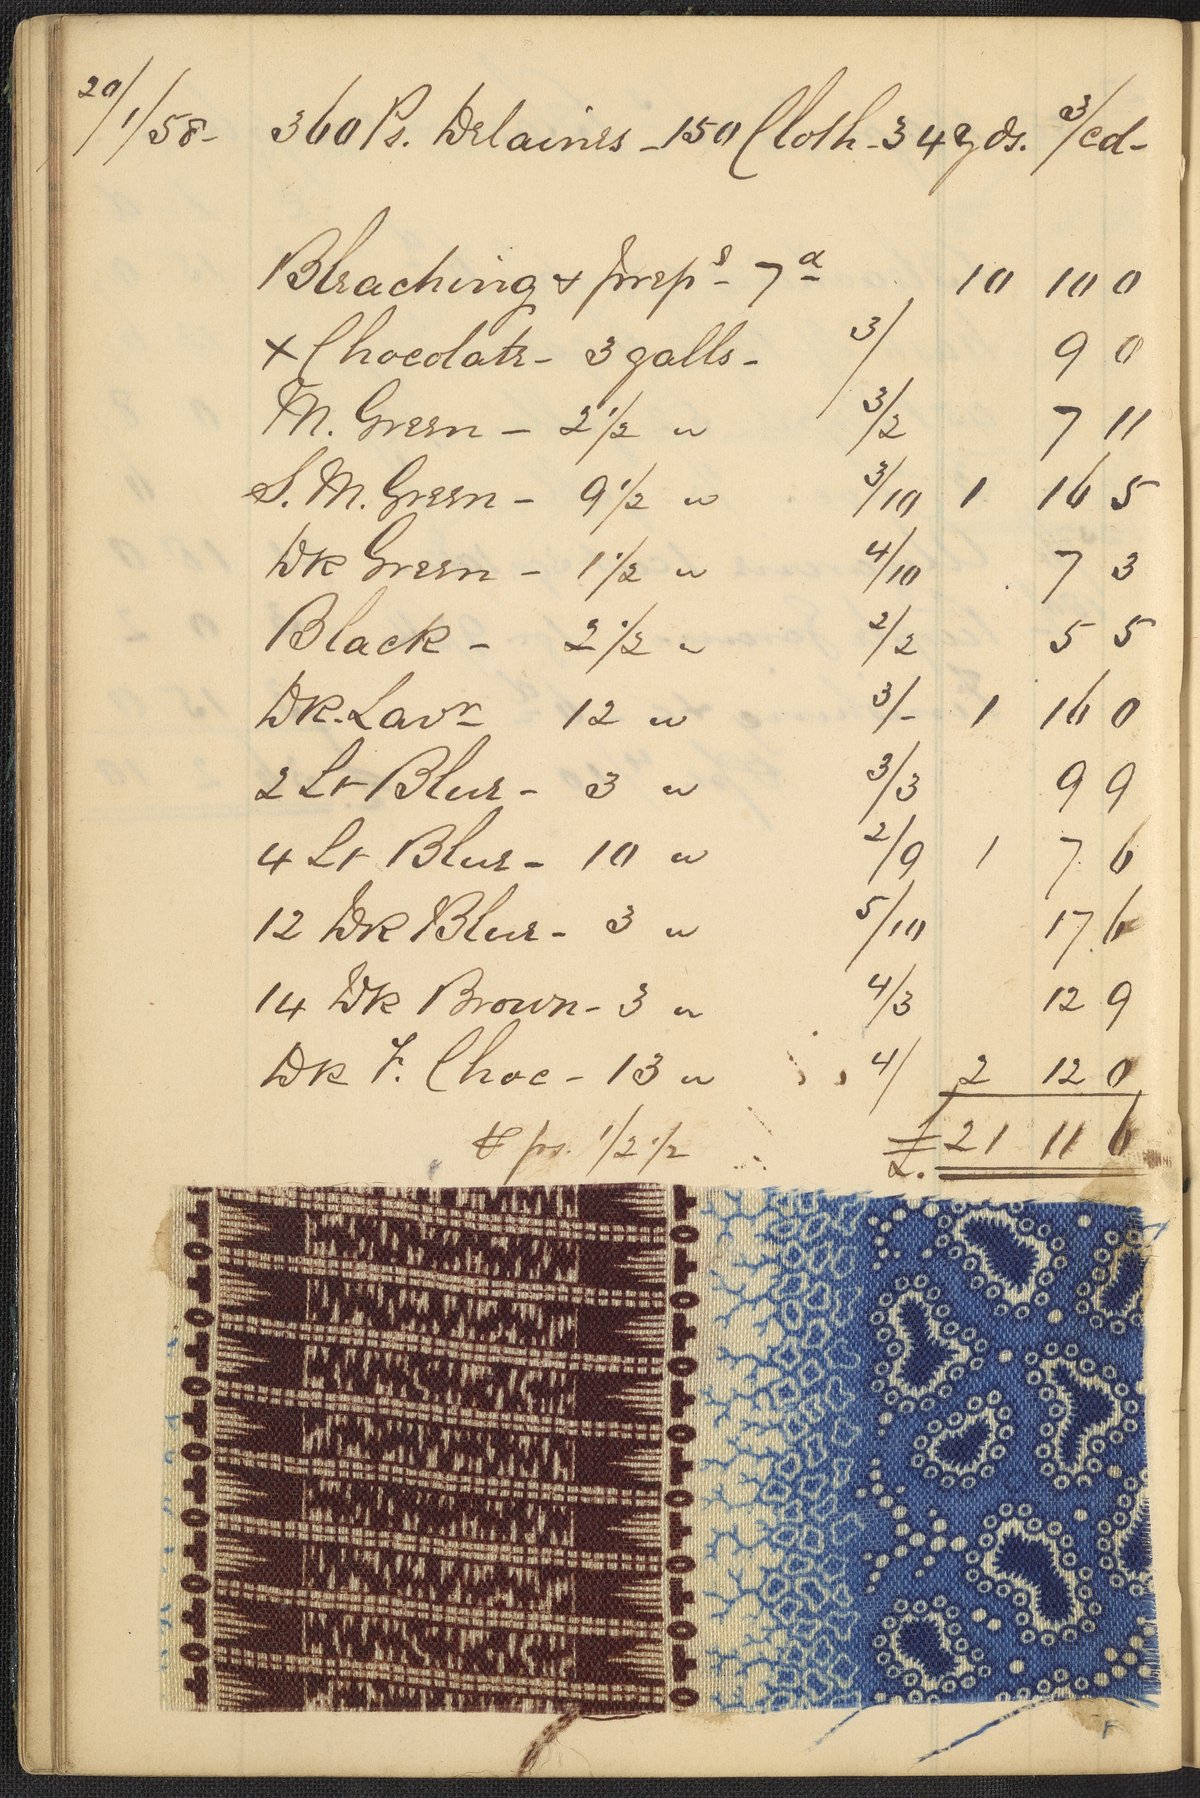 20/1/58- 360 Ps. Delaines - 150 Cloth - 34 yds. 3/cd-
Bleaching & prep s - 7 d 10 10 0
+ Chocolate - 3 galls - 3/ 9 0
M. Green - 2 1/2 " 3/2 7 11
S. M. Green - 9 1/2 " 3/10 1 16 5
Dk Green - 1 1/2 " 4/10 7 3
Black - 2 1/2 " 2/2 5 5
Dk. Lavr 12 " 3/- 1 16 0
2 Lt Blue - 3 " 3/3 9 9
4 Lt Blue - 10 " 2/9 1 7 6
12 Dk Blue - 3 " 5/10 17 6
14 Dk Brown - 3 " 4/3 12 9
Dk F. Choc - 13 " 4/ 2 12 0
ps. 1/2 1/2 £ 21 11 6